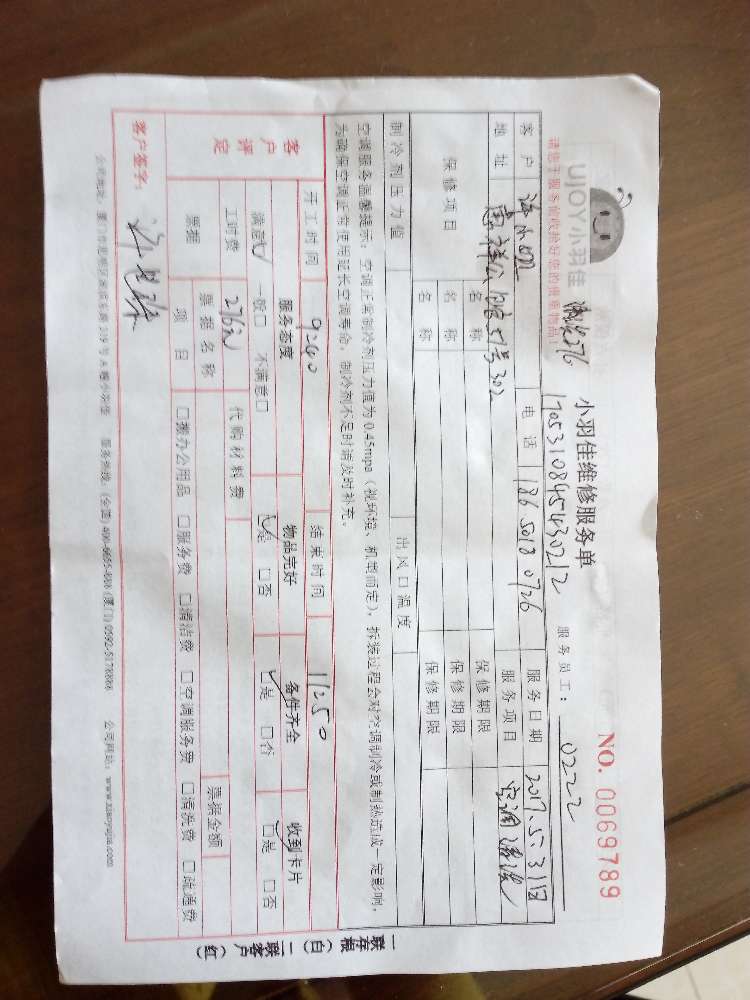 UJOY小羽佳
请您于服务前收拾好您的贵重物品！
小羽佳维修服务单
NO. 0069789
1705310845430212
服务员工：0222
客户 电话 186 5018 0726 服务日期 2017.5.31日
地址 302 服务项目 空调清洗
保修项目 名称 保修期限
名称 保修期限
名称 保修期限
制冷剂压力值 出风口温度
空调服务温馨提示：空调正常制冷剂压力值为0.45mpa（视环境、机型而定），拆装过程会对空调制冷或制热造成一定影响，
为确保空调正常使用延长空调寿命，制冷剂不足时请及时补充。
开工时间 9:40 结束时间 11:50
客户评定 服务态度 物品完好 备件齐全 收到卡片
满意☑ 一般□ 不满意□ ☑是 □否 ☑是 □否 ☑是 □否
工时费 276元 代购材料费
票据 票据名称 票据金额
项目 □搬办公用品 □服务费 □清洁费 □空调服务费 □清洗费 □疏通费
客户签字：
服务热线：(全国) 400-6655-888 (厦门) 0592-5178888 公司网站：www.xiaoyujia.com
一联存根（白）二联客户（红）